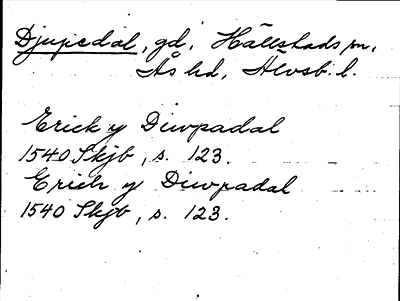 Djupedal, gd, Hällstads sn,
Ås hd, Älvsb. l.
Erick y Diwpadal
1540 Skjb, s. 123.
Erich y Diwpadal
1540 Skjb, s. 123.